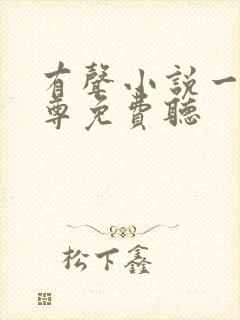 有聲小說一
尊免費聽
松下鑫